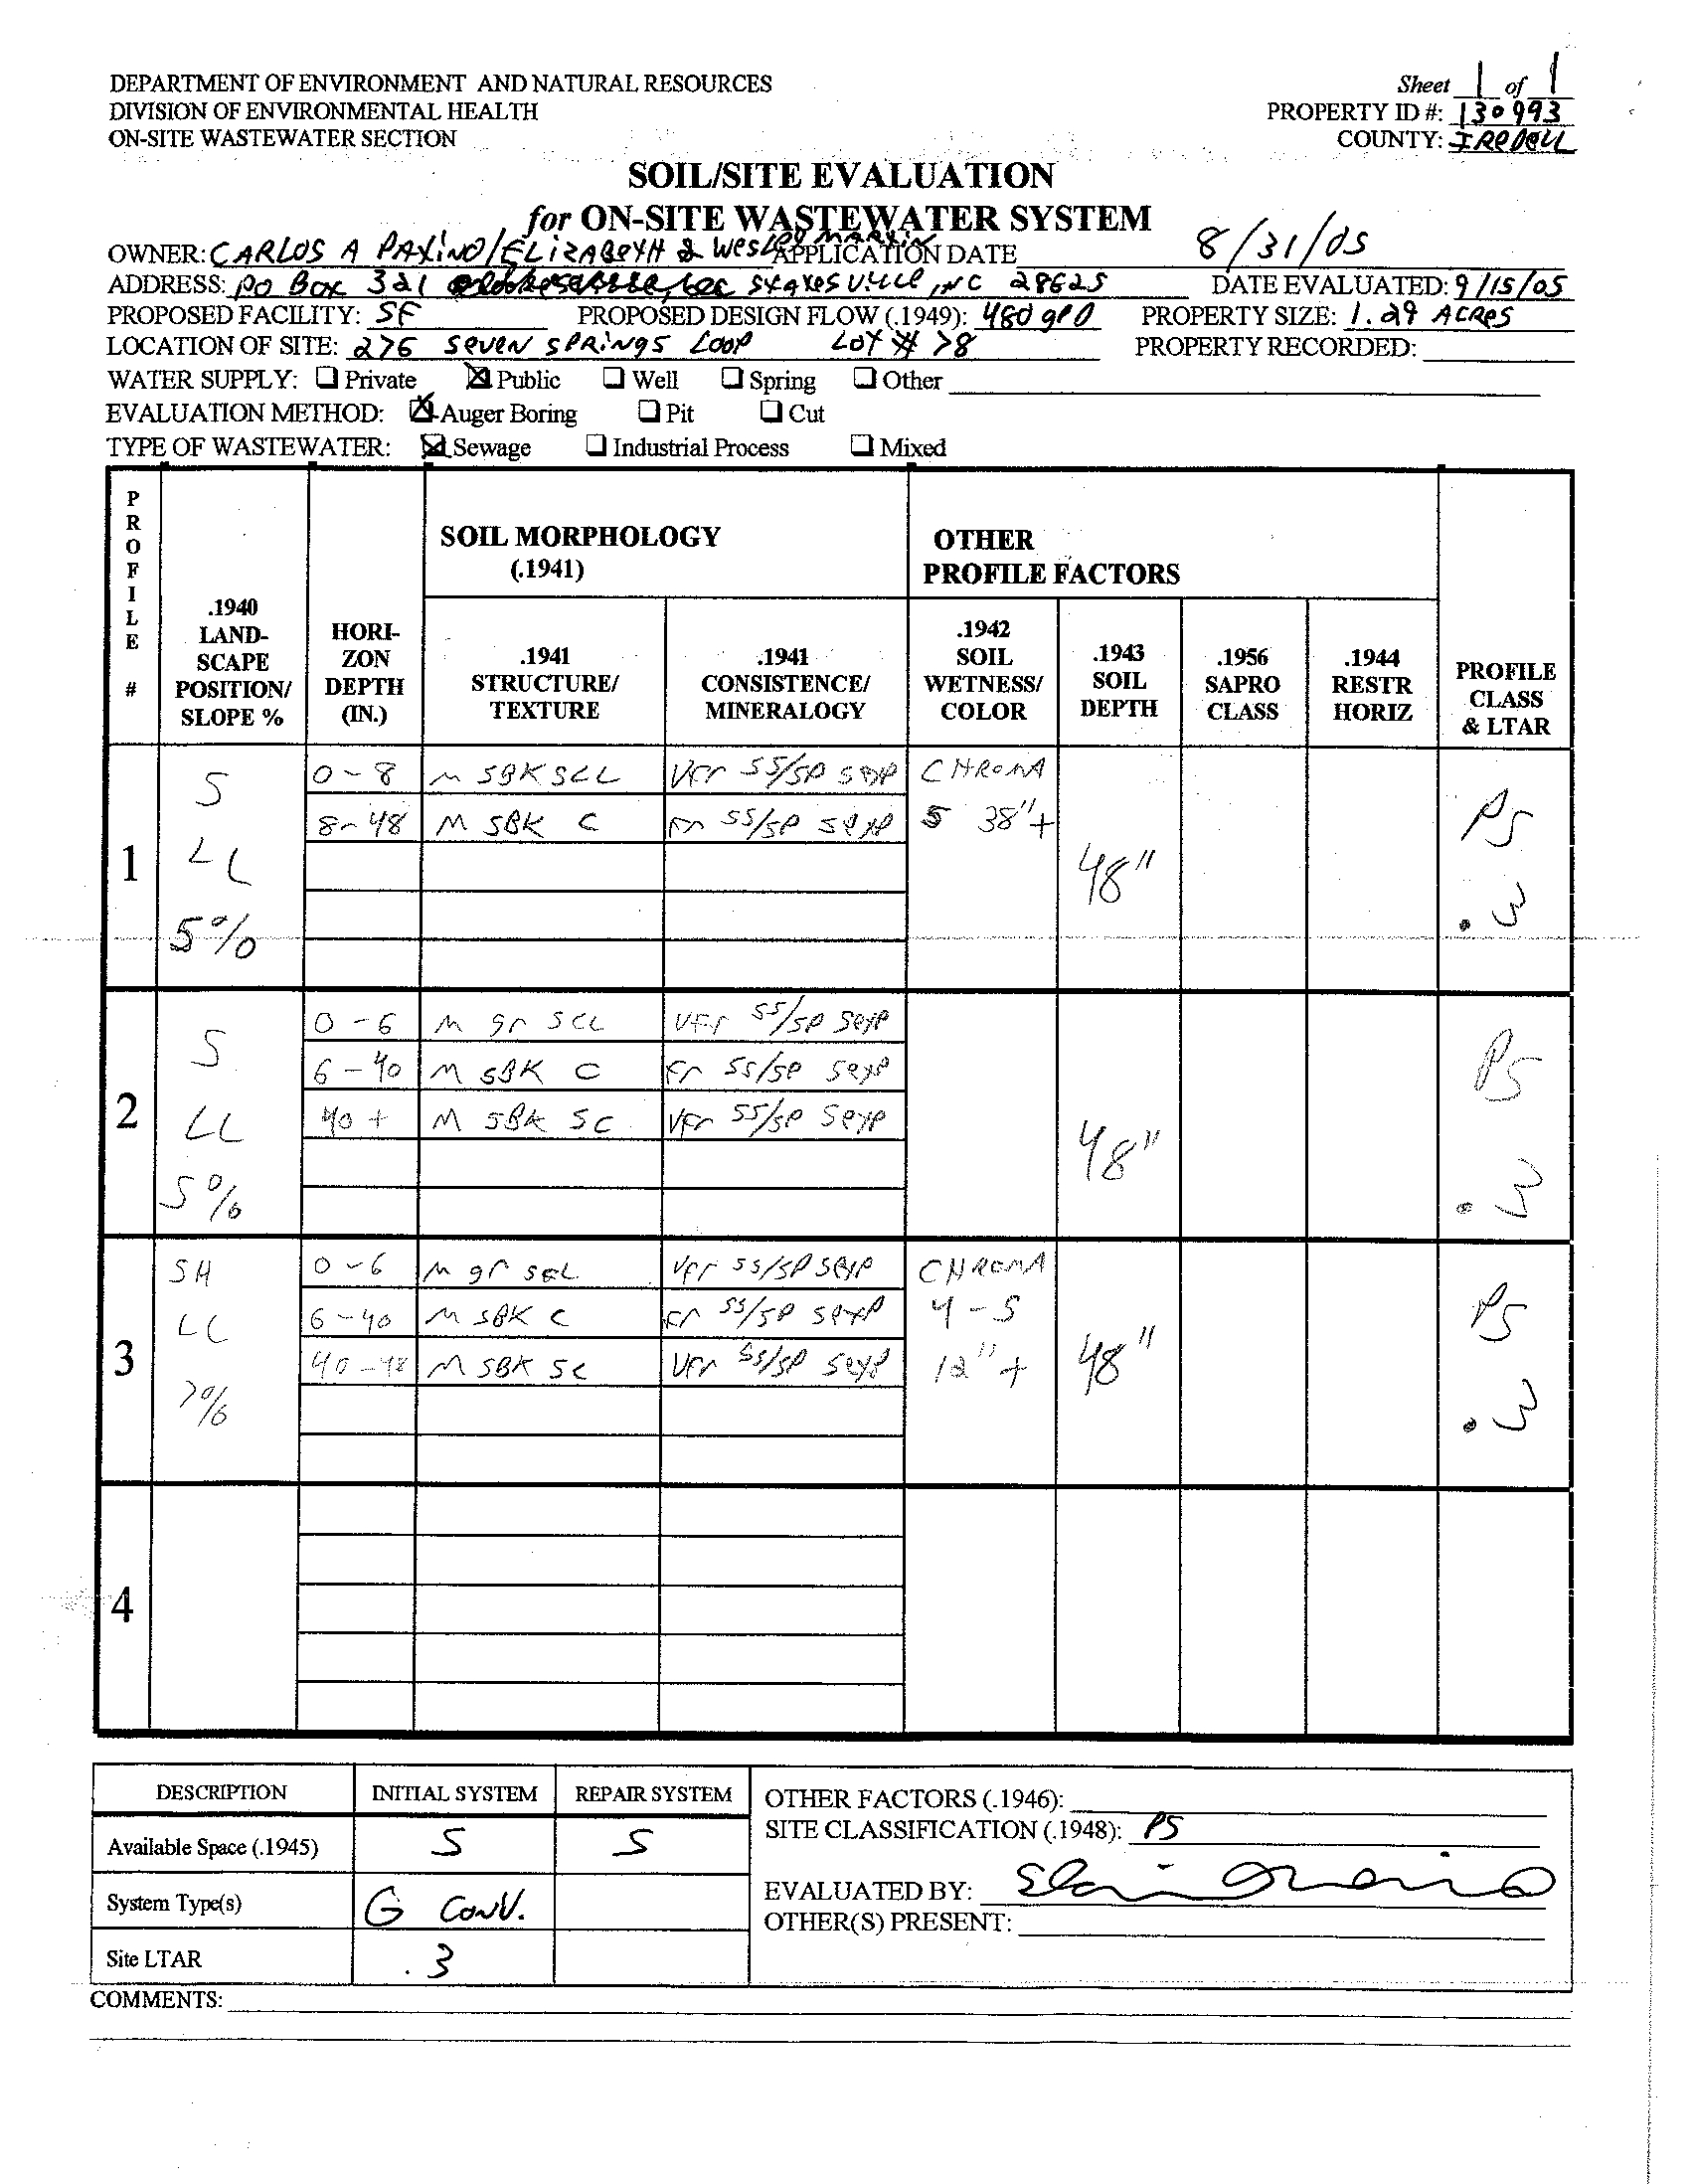 DEPARTMENT OF ENVIRONMENT AND NATURAL RESOURCES
DIVISION OF ENVIRONMENTAL HEALTH
ON-SITE WASTEWATER SECTION
Sheet 1 of 1
PROPERTY ID #: 130993
COUNTY: IREDELL
SOIL/SITE EVALUATION
for ON-SITE WASTEWATER SYSTEM
OWNER: CARLOS A PAXINO/ELIZABETH & WESLEY MARTIN APPLICATION DATE 8/31/05
ADDRESS: PO BOX 321 STATESVILLE, NC 28625 DATE EVALUATED: 9/15/05
PROPOSED FACILITY: SF PROPOSED DESIGN FLOW (.1949): 480 gPD PROPERTY SIZE: 1.29 ACRES
LOCATION OF SITE: 276 SEVEN SPRINGS LOOP LOT # 78 PROPERTY RECORDED:
WATER SUPPLY: Private Public Well Spring Other
EVALUATION METHOD: Auger Boring Pit Cut
TYPE OF WASTEWATER: Sewage Industrial Process Mixed
PROFILE #
.1940 LAND-SCAPE POSITION/ SLOPE %
HORI-ZON DEPTH (IN.)
SOIL MORPHOLOGY (.1941)
.1941 STRUCTURE/ TEXTURE
.1941 CONSISTENCE/ MINERALOGY
OTHER PROFILE FACTORS
.1942 SOIL WETNESS/ COLOR
.1943 SOIL DEPTH
.1956 SAPRO CLASS
.1944 RESTR HORIZ
PROFILE CLASS & LTAR
1
S LL 5%
0-8 M SBK SCL VFr SS/SP SEXP
8-48 M SBK C Fr SS/SP SEXP
CHROMA
5 38"+
48"
PS
.3
2
S LL 5%
0-6 M gr SCL VFr SS/SP SEXP
6-40 M SBK C Fr SS/SP SEXP
40+ M SBK SC VFr SS/SP SEXP
48"
PS
.3
3
SH LL 7%
0-6 M gr SCL VFr SS/SP SEXP
6-40 M SBK C Fr SS/SP SEXP
40-48 M SBK SC VFr SS/SP SEXP
CHROMA
4-5
12"+
48"
PS
.3
4
DESCRIPTION INITIAL SYSTEM REPAIR SYSTEM
Available Space (.1945) S S
System Type(s) G CONV.
Site LTAR .3
OTHER FACTORS (.1946):
SITE CLASSIFICATION (.1948): PS
EVALUATED BY:
OTHER(S) PRESENT:
COMMENTS: